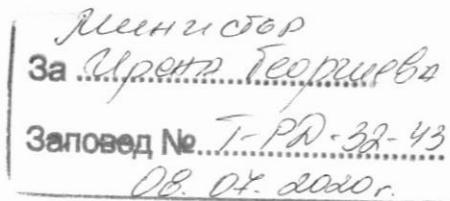 Министър
За Ирена Георгиева
Заповед № Т-РД-32-43
08.07.2020г.